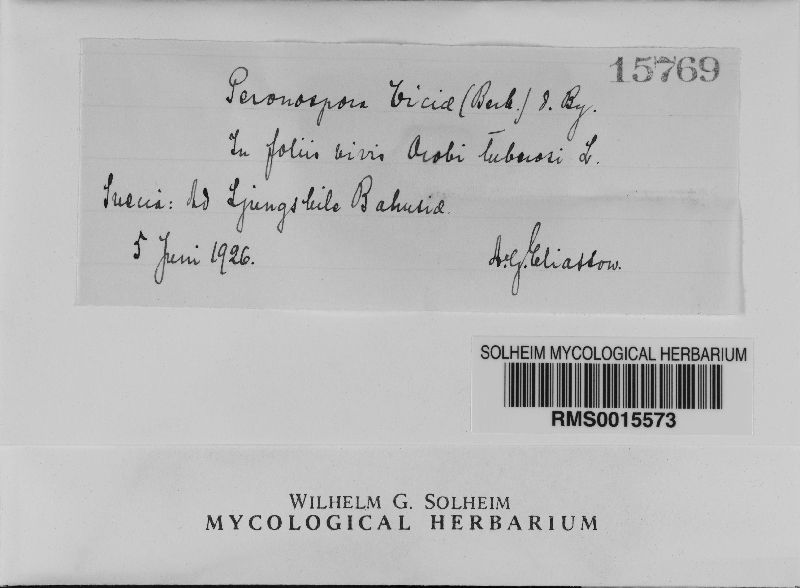 15769
Peronospora Viciæ (Berk.) d. By.
In foliis vivis Orobi tuberosi L.
Suecia: Ad Ljungskile Bahusiæ.
5 Juni 1926.
A. G. Eliasson.
SOLHEIM MYCOLOGICAL HERBARIUM
RMS0015573
WILHELM G. SOLHEIM
MYCOLOGICAL HERBARIUM